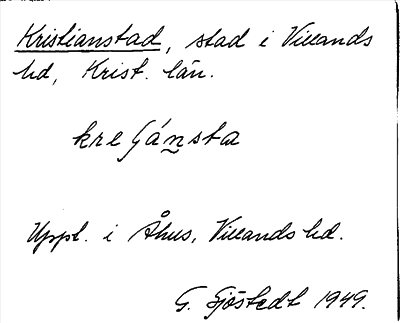 Kristianstad, stad i Villands
hd, Krist. län.
Uppt. i Åhus, Villands hd.
G. Sjöstedt 1949.